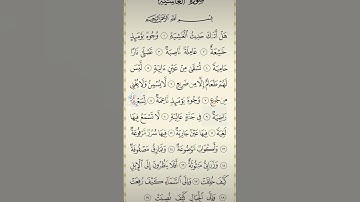 سورة الغاشية
بسم الله الرحمن الرحيم
هَلْ أَتَىٰكَ حَدِيثُ ٱلْغَـٰشِيَةِ ١ وُجُوهٌ يَوْمَئِذٍ
خَـٰشِعَةٌ ٢ عَامِلَةٌ نَّاصِبَةٌ ٣ تَصْلَىٰ نَارًا
حَامِيَةً ٤ تُسْقَىٰ مِنْ عَيْنٍ ءَانِيَةٍ ٥ لَّيْسَ
لَهُمْ طَعَامٌ إِلَّا مِن ضَرِيعٍ ٦ لَّا يُسْمِنُ وَلَا يُغْنِى
مِن جُوعٍ ٧ وُجُوهٌ يَوْمَئِذٍ نَّاعِمَةٌ ٨ لِّسَعْيِهَا
رَاضِيَةٌ ٩ فِى جَنَّةٍ عَالِيَةٍ ١٠ لَّا تَسْمَعُ فِيهَا
لَـٰغِيَةً ١١ فِيهَا عَيْنٌ جَارِيَةٌ ١٢ فِيهَا سُرُرٌ مَّرْفُوعَةٌ
١٣ وَأَكْوَابٌ مَّوْضُوعَةٌ ١٤ وَنَمَارِقُ مَصْفُوفَةٌ
١٥ وَزَرَابِىُّ مَبْثُوثَةٌ ١٦ أَفَلَا يَنظُرُونَ إِلَى ٱلْإِبِلِ
كَيْفَ خُلِقَتْ ١٧ وَإِلَى ٱلسَّمَآءِ كَيْفَ رُفِعَتْ
١٨ وَإِلَى ٱلْجِبَالِ كَيْفَ نُصِبَتْ ١٩